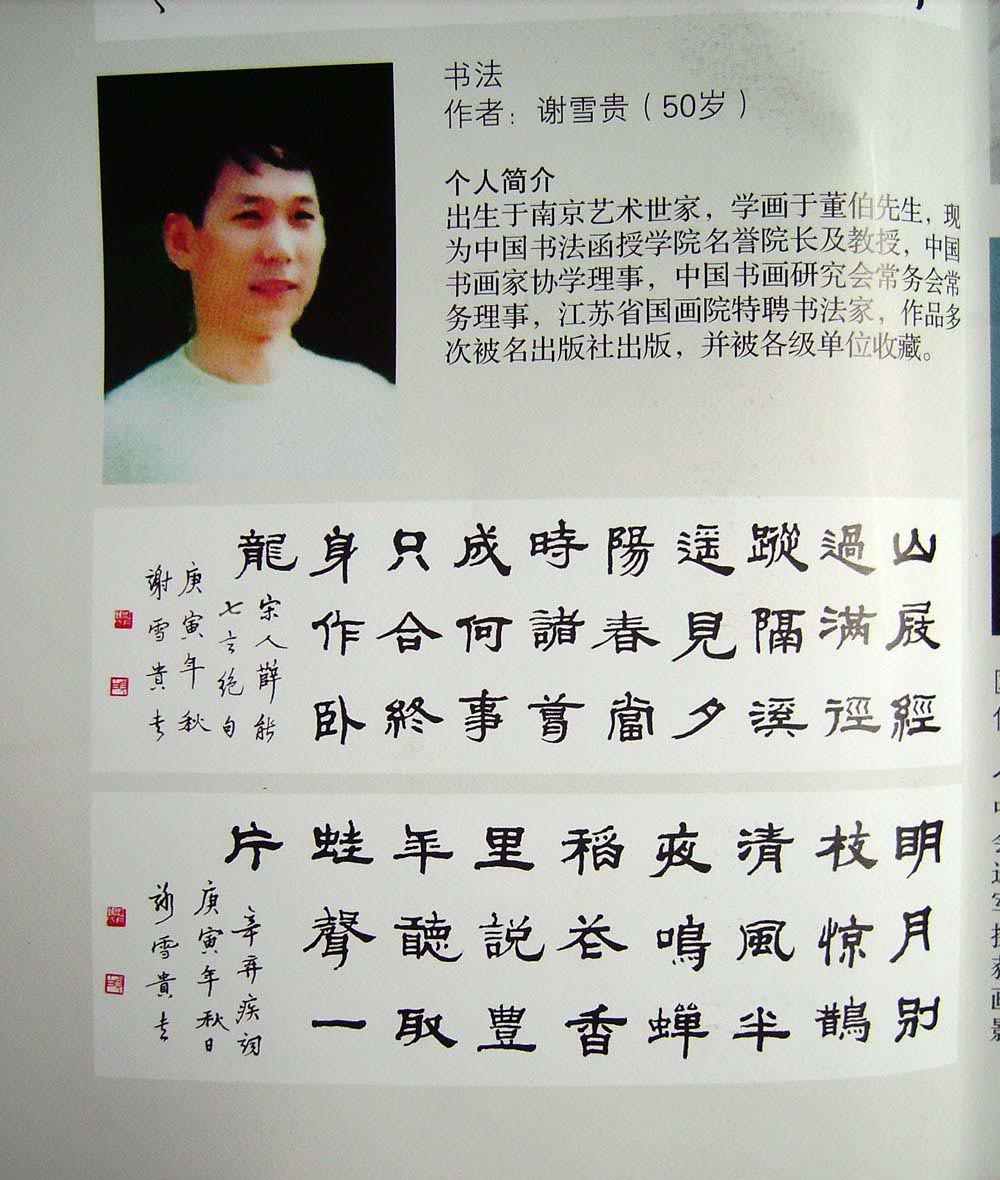 书法
作者：谢雪贵（50岁）
个人简介
出生于南京艺术世家，学画于董伯先生，现
为中国书法函授学院名誉院长及教授，中国
书画家协学理事，中国书画研究会常务会常
务理事，江苏省国画院特聘书法家，作品多
次被名出版社出版，并被各级单位收藏。
山屐經
過滿徑
蹤隔溪
遥見夕
陽春當
時諸葛
成何事
只合終
身作卧
龍
宋人薛能
七言绝句
庚寅年秋
謝雪貴书
明月别
枝惊鵲
清風半
夜鳴蟬
稻花香
里説豐
年聽取
蛙聲一
片
辛弃疾詞
庚寅年秋日
谢雪貴书